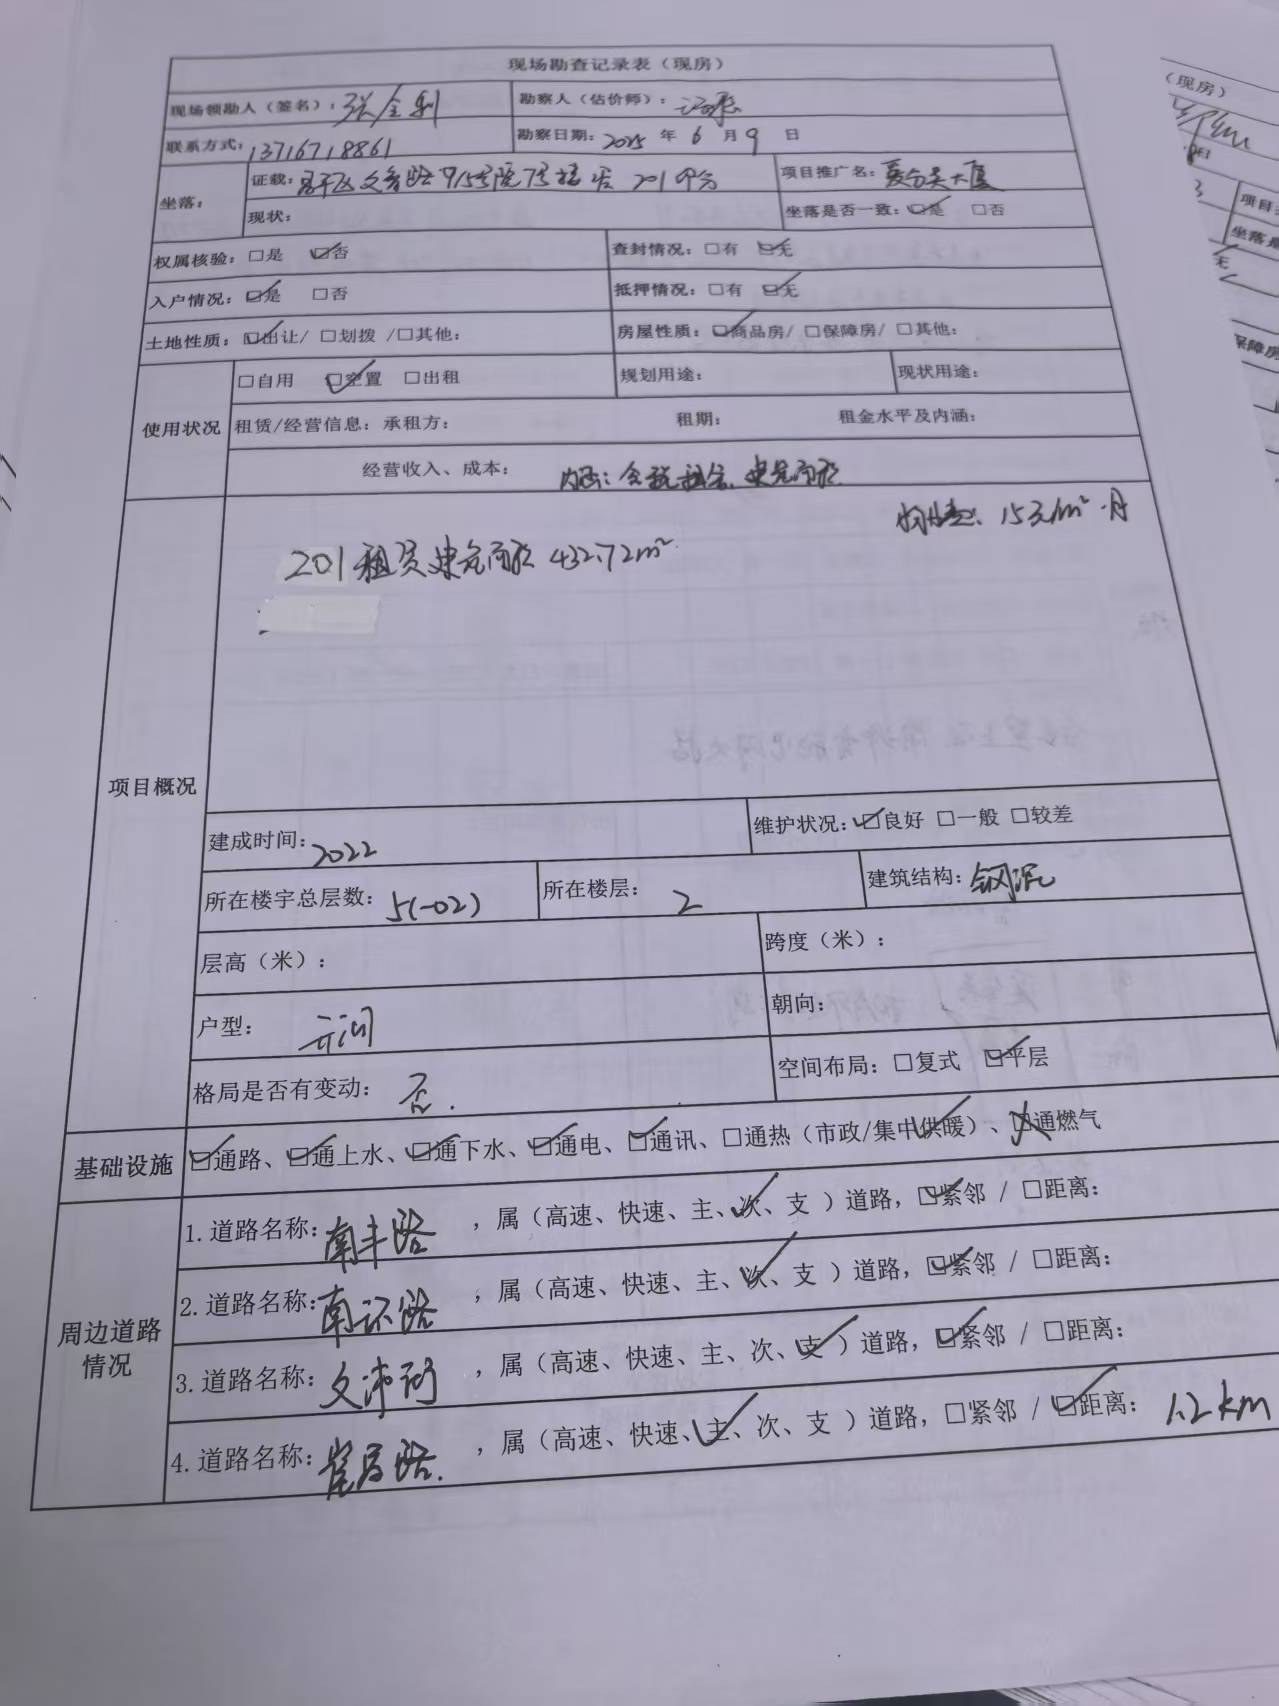 现场勘查记录表（现房）
现场领勘人（签名）：张金利 勘察人（估价师）：
联系方式：13716718861 勘察日期：2025 年 6 月 9 日
坐落： 证载：昌平区文 路 号院7号楼 层 201 部分 项目推广名： 大厦
现状： 坐落是否一致：☑是 □否
权属核验：□是 ☑否 查封情况：□有 ☑无
入户情况：☑是 □否 抵押情况：□有 ☑无
土地性质：☑出让/ □划拨 /□其他： 房屋性质：☑商品房/ □保障房/ □其他：
使用状况 □自用 ☑空置 □出租 规划用途： 现状用途：
租赁/经营信息：承租方： 租期： 租金水平及内涵：
经营收入、成本： 内涵：含税租金、建筑面积
15元/m²·月
201租赁建筑面积 432.72m²
项目概况
建成时间：2022 维护状况：☑良好 □一般 □较差
所在楼宇总层数：5(-02) 所在楼层：2 建筑结构：钢混
层高（米）： 跨度（米）：
户型：开间 朝向：
格局是否有变动：否. 空间布局：□复式 ☑平层
基础设施 ☑通路、☑通上水、☑通下水、☑通电、☑通讯、□通热（市政/集中供暖）、☒通燃气
周边道路情况
1.道路名称：南丰路 ，属（高速、快速、主、次、支 ）道路，☑紧邻 / □距离：
2.道路名称：南环路 ，属（高速、快速、主、次、支 ）道路，☑紧邻 / □距离：
3.道路名称：文 街 ，属（高速、快速、主、次、支 ）道路，☑紧邻 / □距离：
4.道路名称： 路. ，属（高速、快速、主、次、支 ）道路，□紧邻 / ☑距离：1.2km
（现房）
项目
坐落是
无
保障房